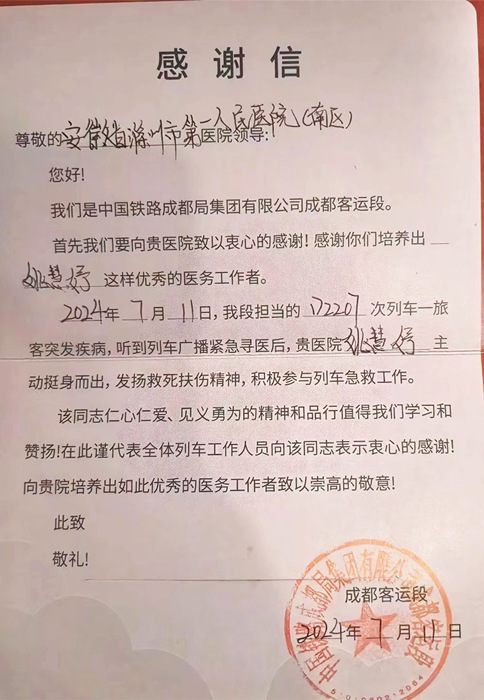 感谢信
尊敬的安徽省滁州市第一人民医院(南区)医院领导:
您好!
我们是中国铁路成都局集团有限公司成都客运段。
首先我们要向贵医院致以衷心的感谢! 感谢你们培养出
姚慧婷 这样优秀的医务工作者。
2024年 7 月 11 日, 我段担当的 D2207 次列车一旅
客突发疾病, 听到列车广播紧急寻医后, 贵医院 姚慧婷 主
动挺身而出, 发扬救死扶伤精神, 积极参与列车急救工作。
该同志仁心仁爱、见义勇为的精神和品行值得我们学习和
赞扬!在此谨代表全体列车工作人员向该同志表示衷心的感谢!
向贵院培养出如此优秀的医务工作者致以崇高的敬意!
此致
敬礼!
成都客运段
2024 年 7 月 11 日